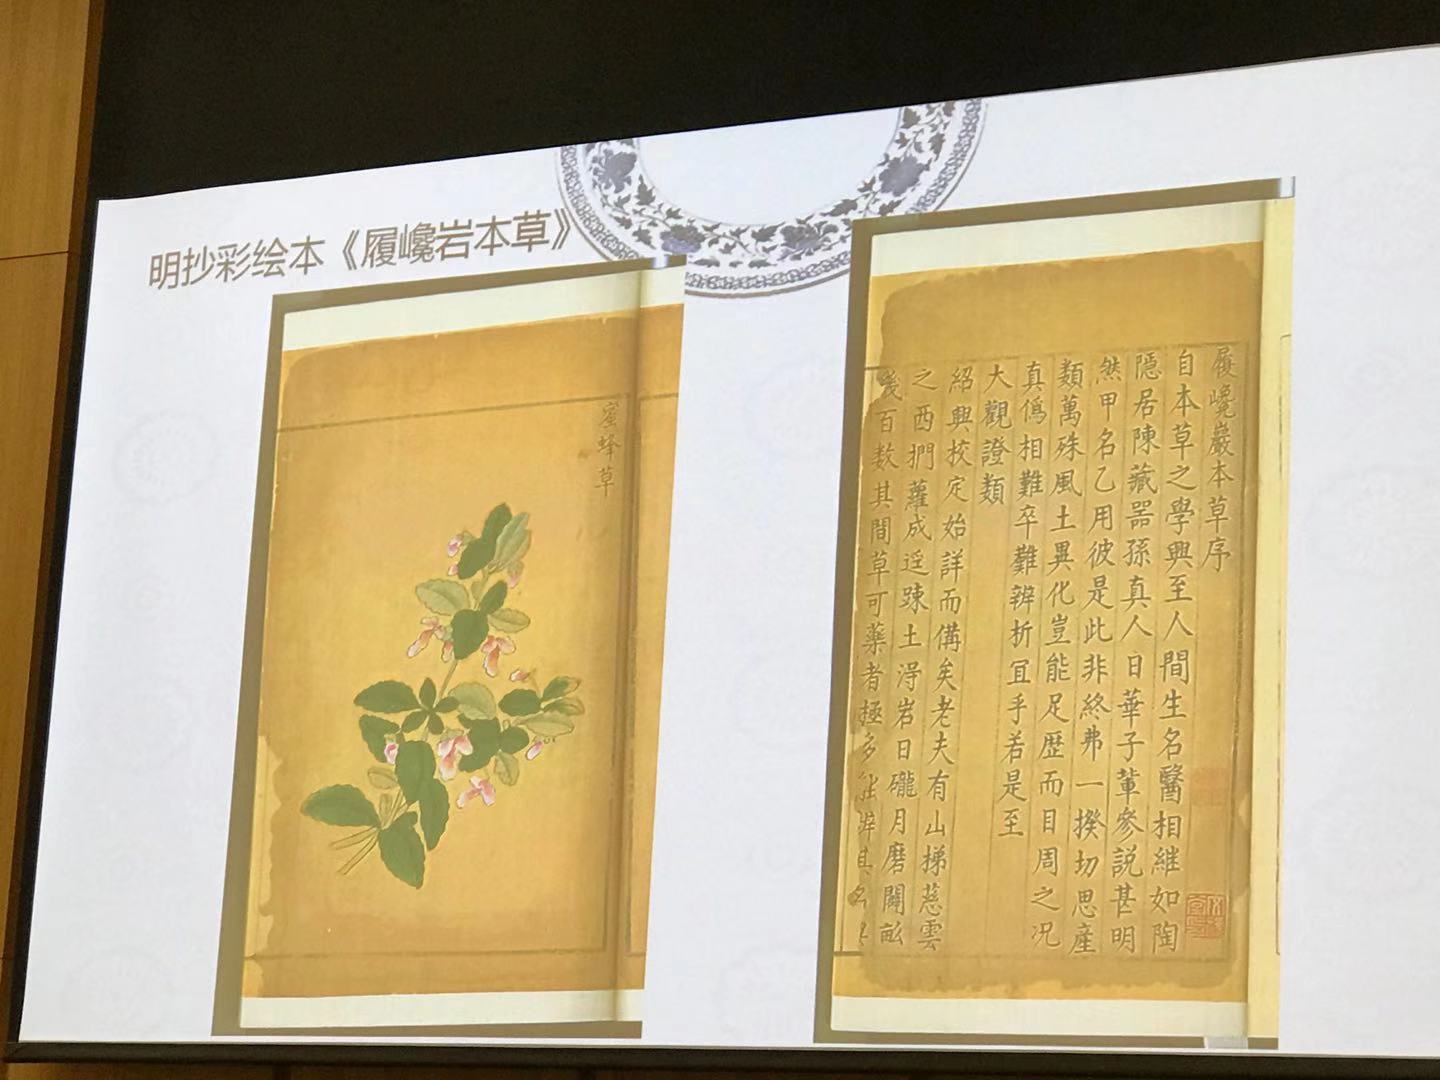 明抄彩绘本《履巉岩本草》
蜜蜂草
履巉巖本草序
自本草之學興至人間生名醫相継如陶
隱居陳藏器孫真人日華子輩參説甚明
然甲名乙用彼是此非終弗一揆切思産
類萬殊風土異化豈能足歴而目周之况
真僞相難卒難辨折冝乎若是至
大觀證類
紹興校定始詳而備矣老夫有山梯慈雲
之西捫蘿成逕踈土淂岩日礲月磨闢畆
幾百數其間草可藥者極多能辨其名